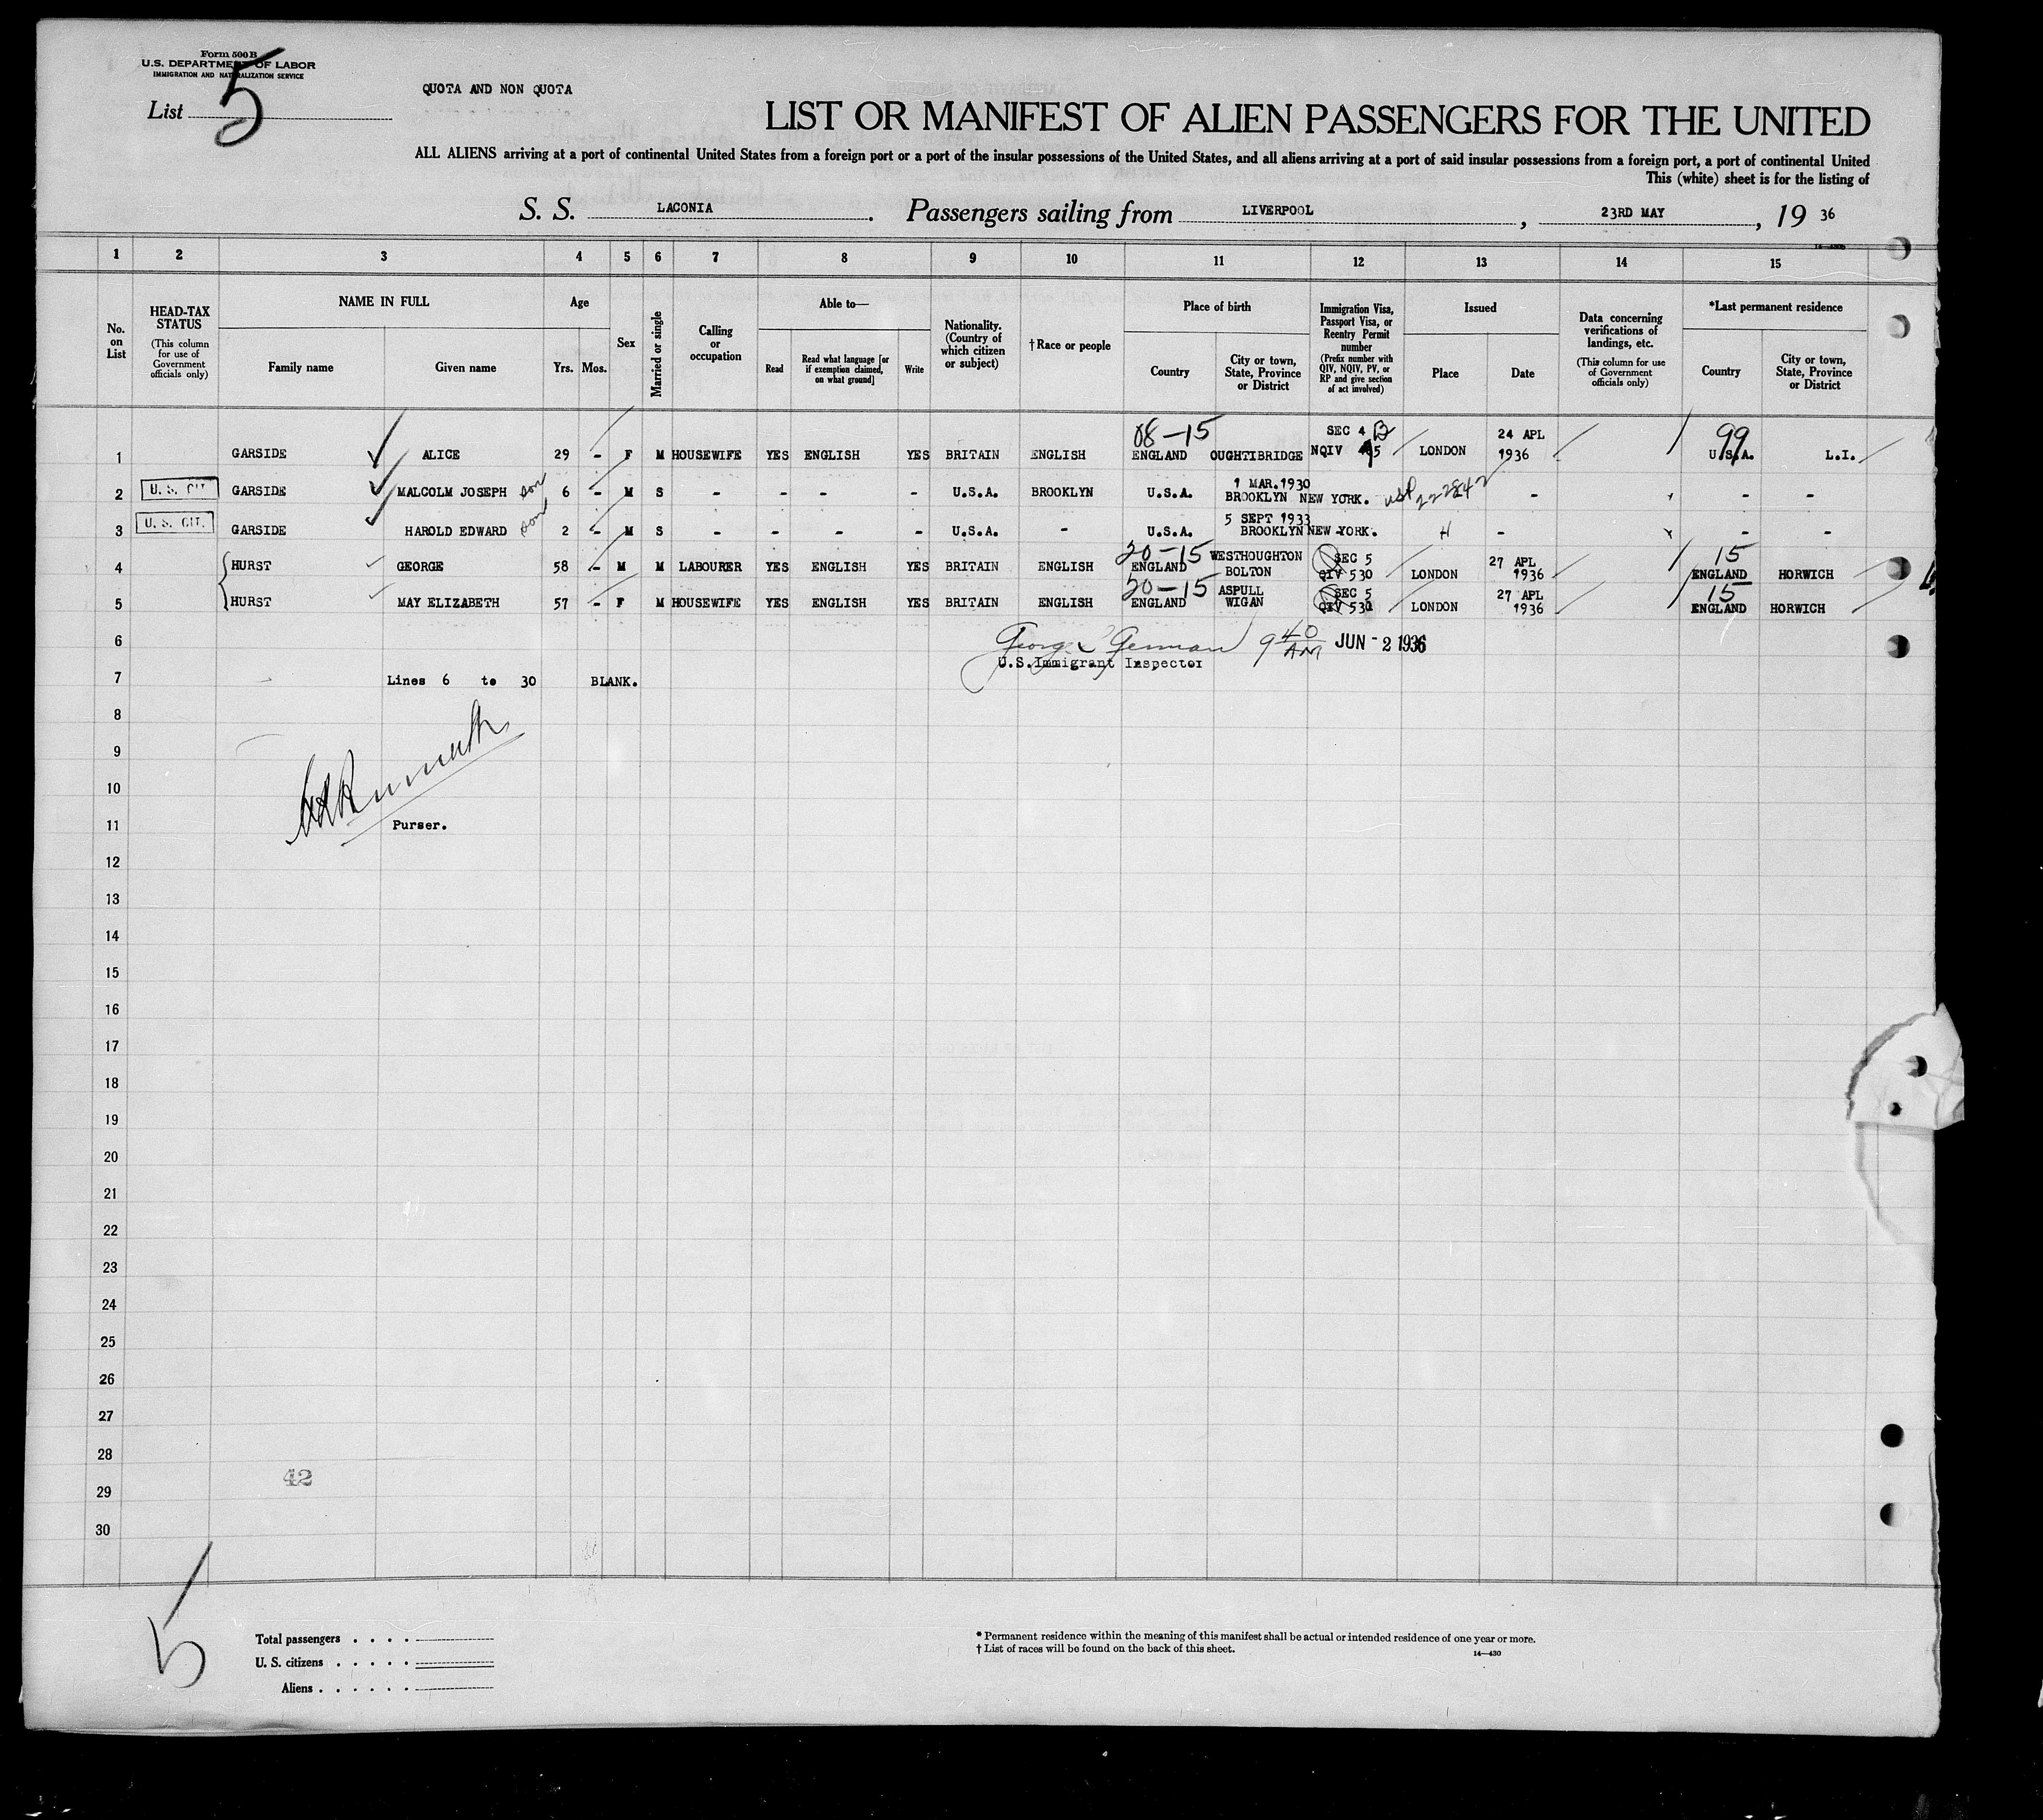 Form 500 B
U. S. DEPARTMENT OF LABOR
IMMIGRATION AND NATURALIZATION SERVICE
List 5
QUOTA AND NON QUOTA
LIST OR MANIFEST OF ALIEN PASSENGERS FOR THE UNITED
ALL ALIENS arriving at a port of continental United States from a foreign port or a port of the insular possessions of the United States, and all aliens arriving at a port of said insular possessions from a foreign port, a port of continental United
This (white) sheet is for the listing of
S. S. LACONIA. Passengers sailing from LIVERPOOL, 23RD MAY, 19 36
1 2 3 4 5 6 7 8 9 10 11 12 13 14 15
No. on List
HEAD-TAX STATUS (This column for use of Government officials only)
NAME IN FULL
Family name Given name
Age
Yrs. Mos.
Sex
Married or single
Calling or occupation
Able to—
Read
Read what language [or if exemption claimed, on what ground]
Write
Nationality. (Country of which citizen or subject)
† Race or people
Place of birth
Country
City or town, State, Province or District
Immigration Visa, Passport Visa, or Reentry Permit number (Prefix number with QIV, NQIV, PV, or RP and give section of act involved)
Issued
Place Date
Data concerning verifications of landings, etc. (This column for use of Government officials only)
*Last permanent residence
Country
City or town, State, Province or District
08-15 SEC 4 B 24 APL 99
1 GARSIDE ALICE 29 - F M HOUSEWIFE YES ENGLISH YES BRITAIN ENGLISH ENGLAND OUGHTIBRIDGE NQIV LONDON 1936 U.S.A. L.I.
1 MAR.1930
2 U. S. CIT. GARSIDE MALCOLM JOSEPH son 6 - M S - - - - U.S.A. BROOKLYN U.S.A. BROOKLYN NEW YORK. USP 222842 - - -
5 SEPT 1933
3 U. S. CIT. GARSIDE HAROLD EDWARD son 2 - M S - - - - U.S.A. - U.S.A. BROOKLYN NEW YORK. - - -
20-15 WESTHOUGHTON SEC 5 27 APL 15
4 HURST GEORGE 58 - M M LABOURER YES ENGLISH YES BRITAIN ENGLISH ENGLAND BOLTON QIV 530 LONDON 1936 ENGLAND HORWICH
20-15 ASPULL SEC 5 27 APL 15
5 HURST MAY ELIZABETH 57 - F M HOUSEWIFE YES ENGLISH YES BRITAIN ENGLISH ENGLAND WIGAN QIV 531 LONDON 1936 ENGLAND HORWICH
6 German 9 40 AM JUN - 2 1936
U.S.Immigrant Inspector
7 Lines 6 to 30 BLANK.
8
9
10
11 Purser.
12
13
14
15
16
17
18
19
20
21
22
23
24
25
26
27
28
42
29
30
5
Total passengers . . . .
U. S. citizens . . . . .
Aliens . . . . . .
* Permanent residence within the meaning of this manifest shall be actual or intended residence of one year or more.
† List of races will be found on the back of this sheet.
14—430